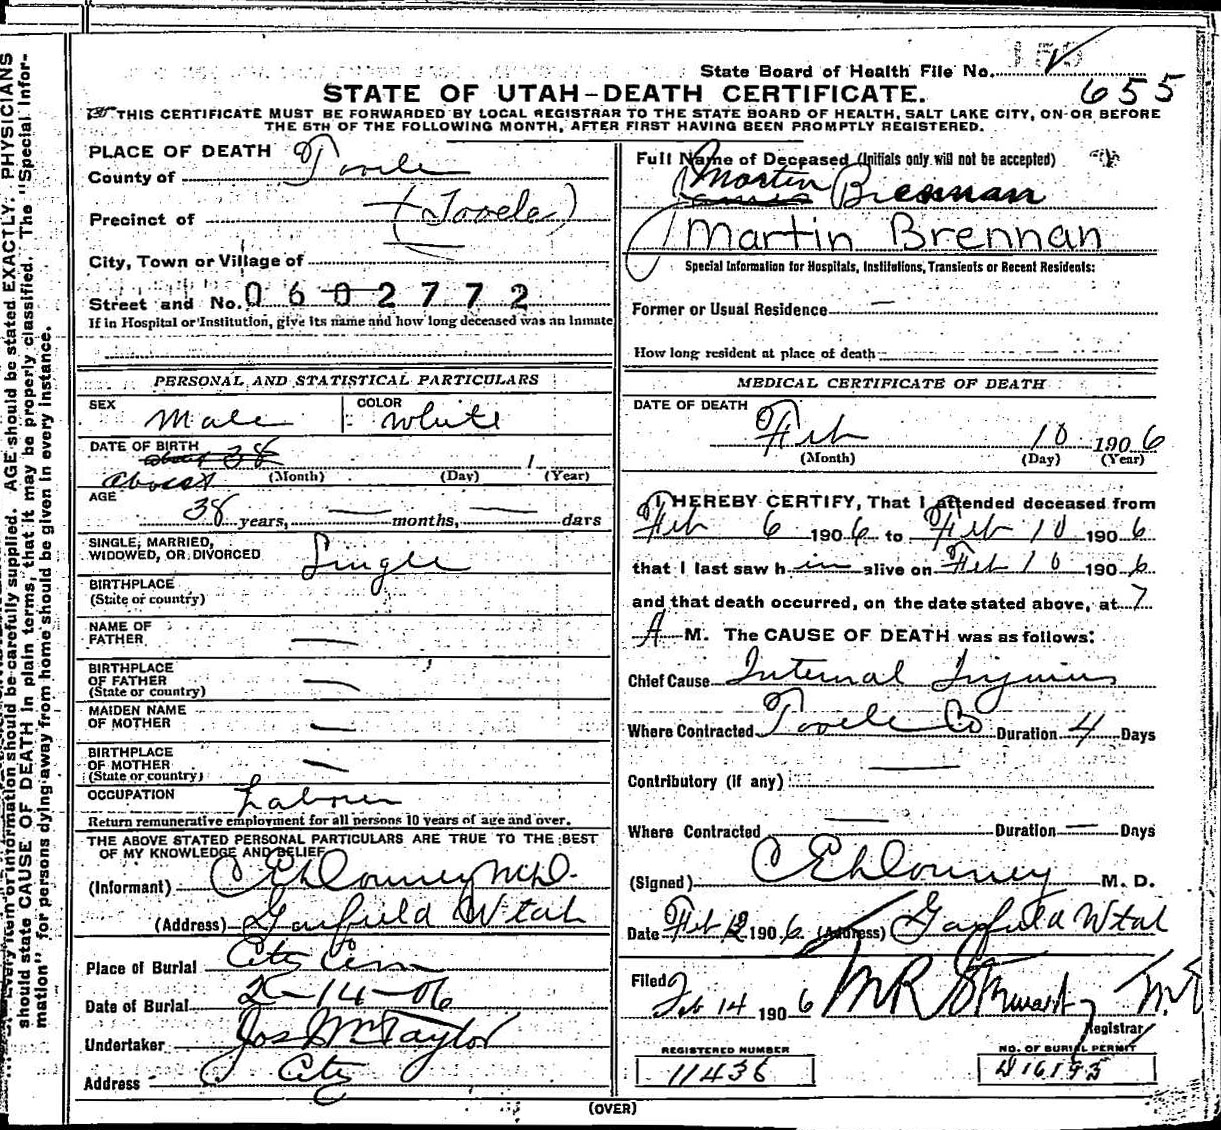 State Board of Health File No. 655
STATE OF UTAH-DEATH CERTIFICATE.
THIS CERTIFICATE MUST BE FORWARDED BY LOCAL REGISTRAR TO THE STATE BOARD OF HEALTH, SALT LAKE CITY, ON OR BEFORE
THE 5TH OF THE FOLLOWING MONTH, AFTER FIRST HAVING BEEN PROMPTLY REGISTERED.
PLACE OF DEATH
County of Tooele
Precinct of (Tooele)
City, Town or Village of
Street and No. 0602772
If in Hospital or Institution, give its name and how long deceased was an Inmate
PERSONAL AND STATISTICAL PARTICULARS
SEX Male COLOR White
DATE OF BIRTH about 38 1
about (Month) (Day) (Year)
AGE
38 years, — months, — days
SINGLE, MARRIED,
WIDOWED, OR DIVORCED Single
BIRTHPLACE
(State or country)
NAME OF
FATHER —
BIRTHPLACE
OF FATHER
(State or country) —
MAIDEN NAME
OF MOTHER —
BIRTHPLACE
OF MOTHER
(State or country) —
OCCUPATION Laborer
Return remunerative employment for all persons 10 years of age and over.
THE ABOVE STATED PERSONAL PARTICULARS ARE TRUE TO THE BEST
OF MY KNOWLEDGE AND BELIEF
(Informant) M.D.
(Address) Garfield Utah
Place of Burial City Cem
Date of Burial 2-14-06
Undertaker Jos Wm Taylor
Address City
Full Name of Deceased (Initials only will not be accepted)
Martin
James Brennan
Martin Brennan
Special Information for Hospitals, Institutions, Transients or Recent Residents:
Former or Usual Residence —
How long resident at place of death
MEDICAL CERTIFICATE OF DEATH
DATE OF DEATH
Feb 10 1906
(Month) (Day) (Year)
I HEREBY CERTIFY, That I attended deceased from
Feb 6 1906 to Feb 10 1906
that I last saw him alive on Feb 10 1906
and that death occurred, on the date stated above, at 7
A M. The CAUSE OF DEATH was as follows:
Chief Cause Internal Injuries
Where Contracted Tooele Co Duration 4 Days
Contributory (if any) —
Where Contracted — Duration — Days
(Signed) M. D.
Date Feb 12 1906 (Address) Garfield Utah
Filed Feb 14 1906 M R Stewart
Registrar
REGISTERED NUMBER
11436
NO. OF BURIAL PERMIT
(OVER)
Every item of information should be carefully supplied. AGE should be stated EXACTLY. PHYSICIANS
should state CAUSE OF DEATH in plain terms, that it may be properly classified. The "Special Infor-
mation" for persons dying away from home should be given in every instance.